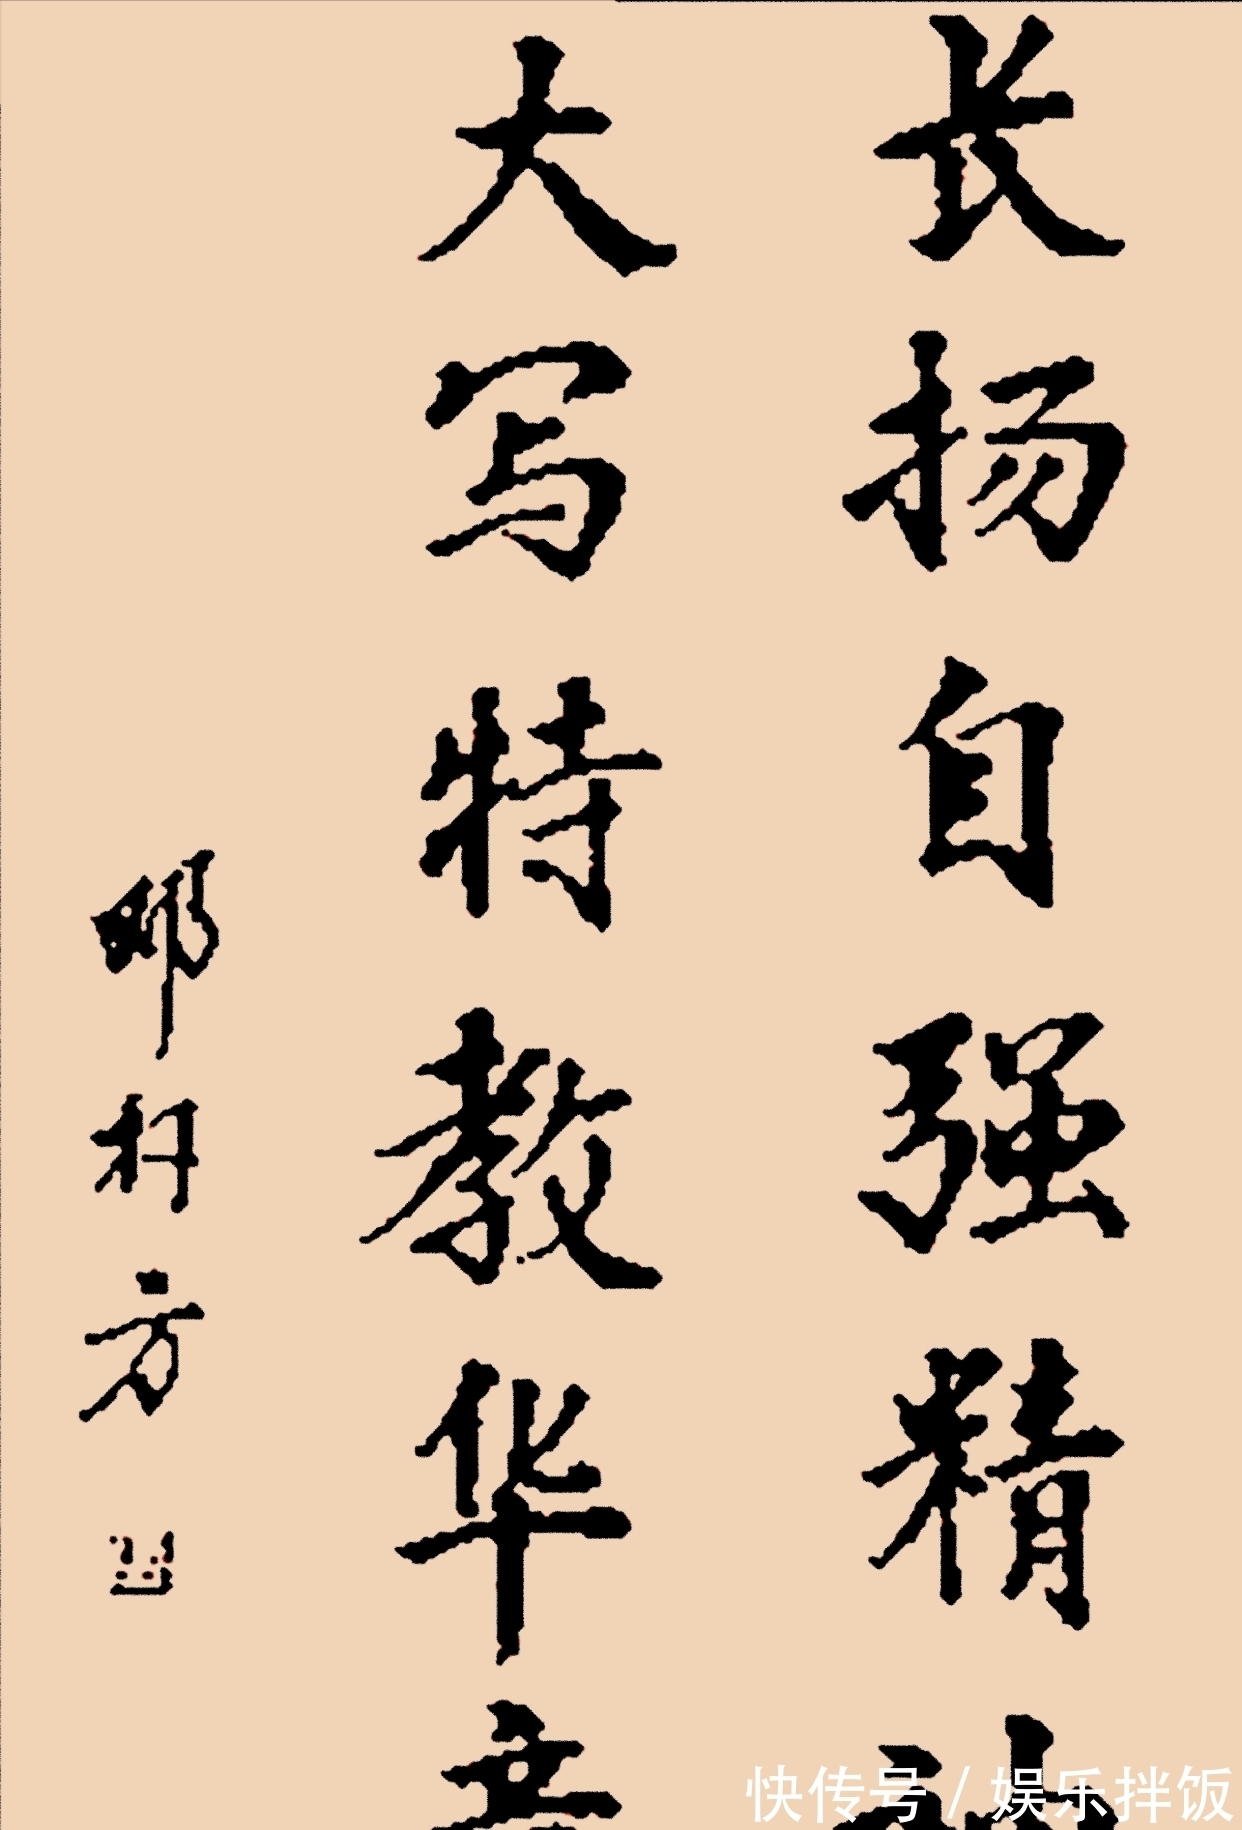 长扬自强精
大写特教华
方
快传号 / 娱乐拌饭